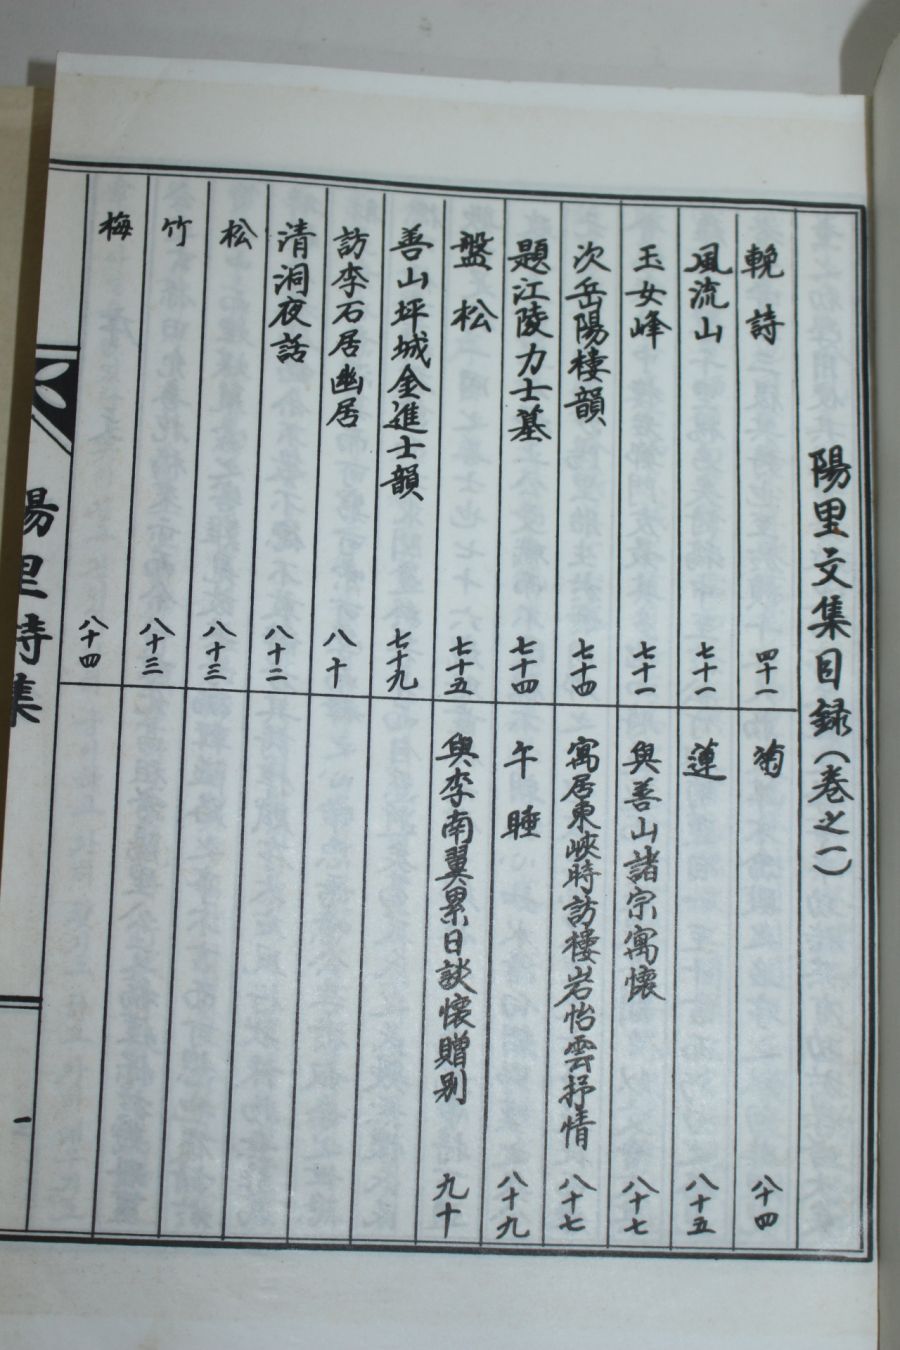 陽里文集目録(巻之一)
輓詩 四十一
風流山 七十一
玉女峰 七十一
次岳陽樓韻 七十四
題江陵力士墓 七十四
盤松 七十五
善山坪城金進士韻 七十九
訪李石居幽居 八十
清洞夜話 八十二
松 八十三
竹 八十三
梅 八十四
菊 八十四
蓮 八十五
與善山諸宗寓懷 八十七
寓居東峽時訪樓岩怡雲抒情 八十七
午睡 八十九
與李南翼累日談懷贈别 九十
陽里詩集
一